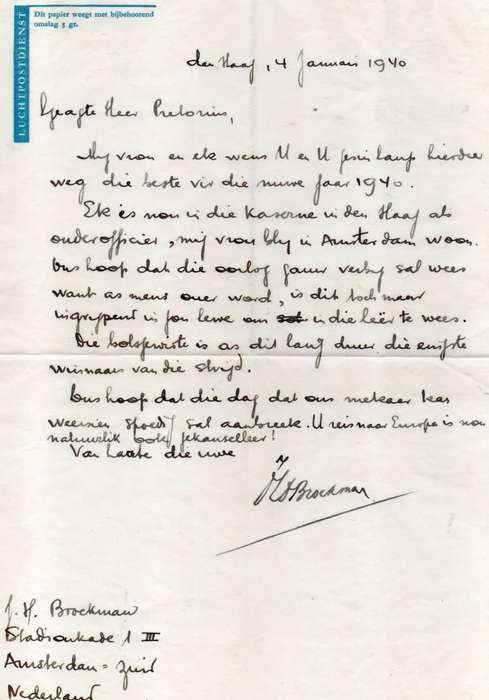 LUCHTPOSTDIENST
Dit papier weegt met bijbehoorend
omslag 5 gr.
den Haag, 4 Januari 1940
Geagte Heer Pretorius,
My vrou en ek wens U en U gesin langs hierdie
weg die beste vir die nuwe jaar 1940.
Ek is nou in die Kaserne in den Haag als
onderofficier, mij vrou bly in Amsterdam woon.
Ons hoop dat die oorlog gauw verby sal wees
want as mens ouer word, is dit toch maar
ingrypend in jou lewe om in die leër te wees.
Die bolsjewiste is as dit lang duur die enigste
wennaars van die stryd.
Ons hoop dat die dag dat ons mekaar kan
weersien spoedig sal aanbreek. U reis naar Europa is nou
natuurlik ook gekanselleer!
Van harte die uwe
JHBroekman
J. H. Broekman
Stadionkade 1 III
Amsterdam = zuid
Nederland